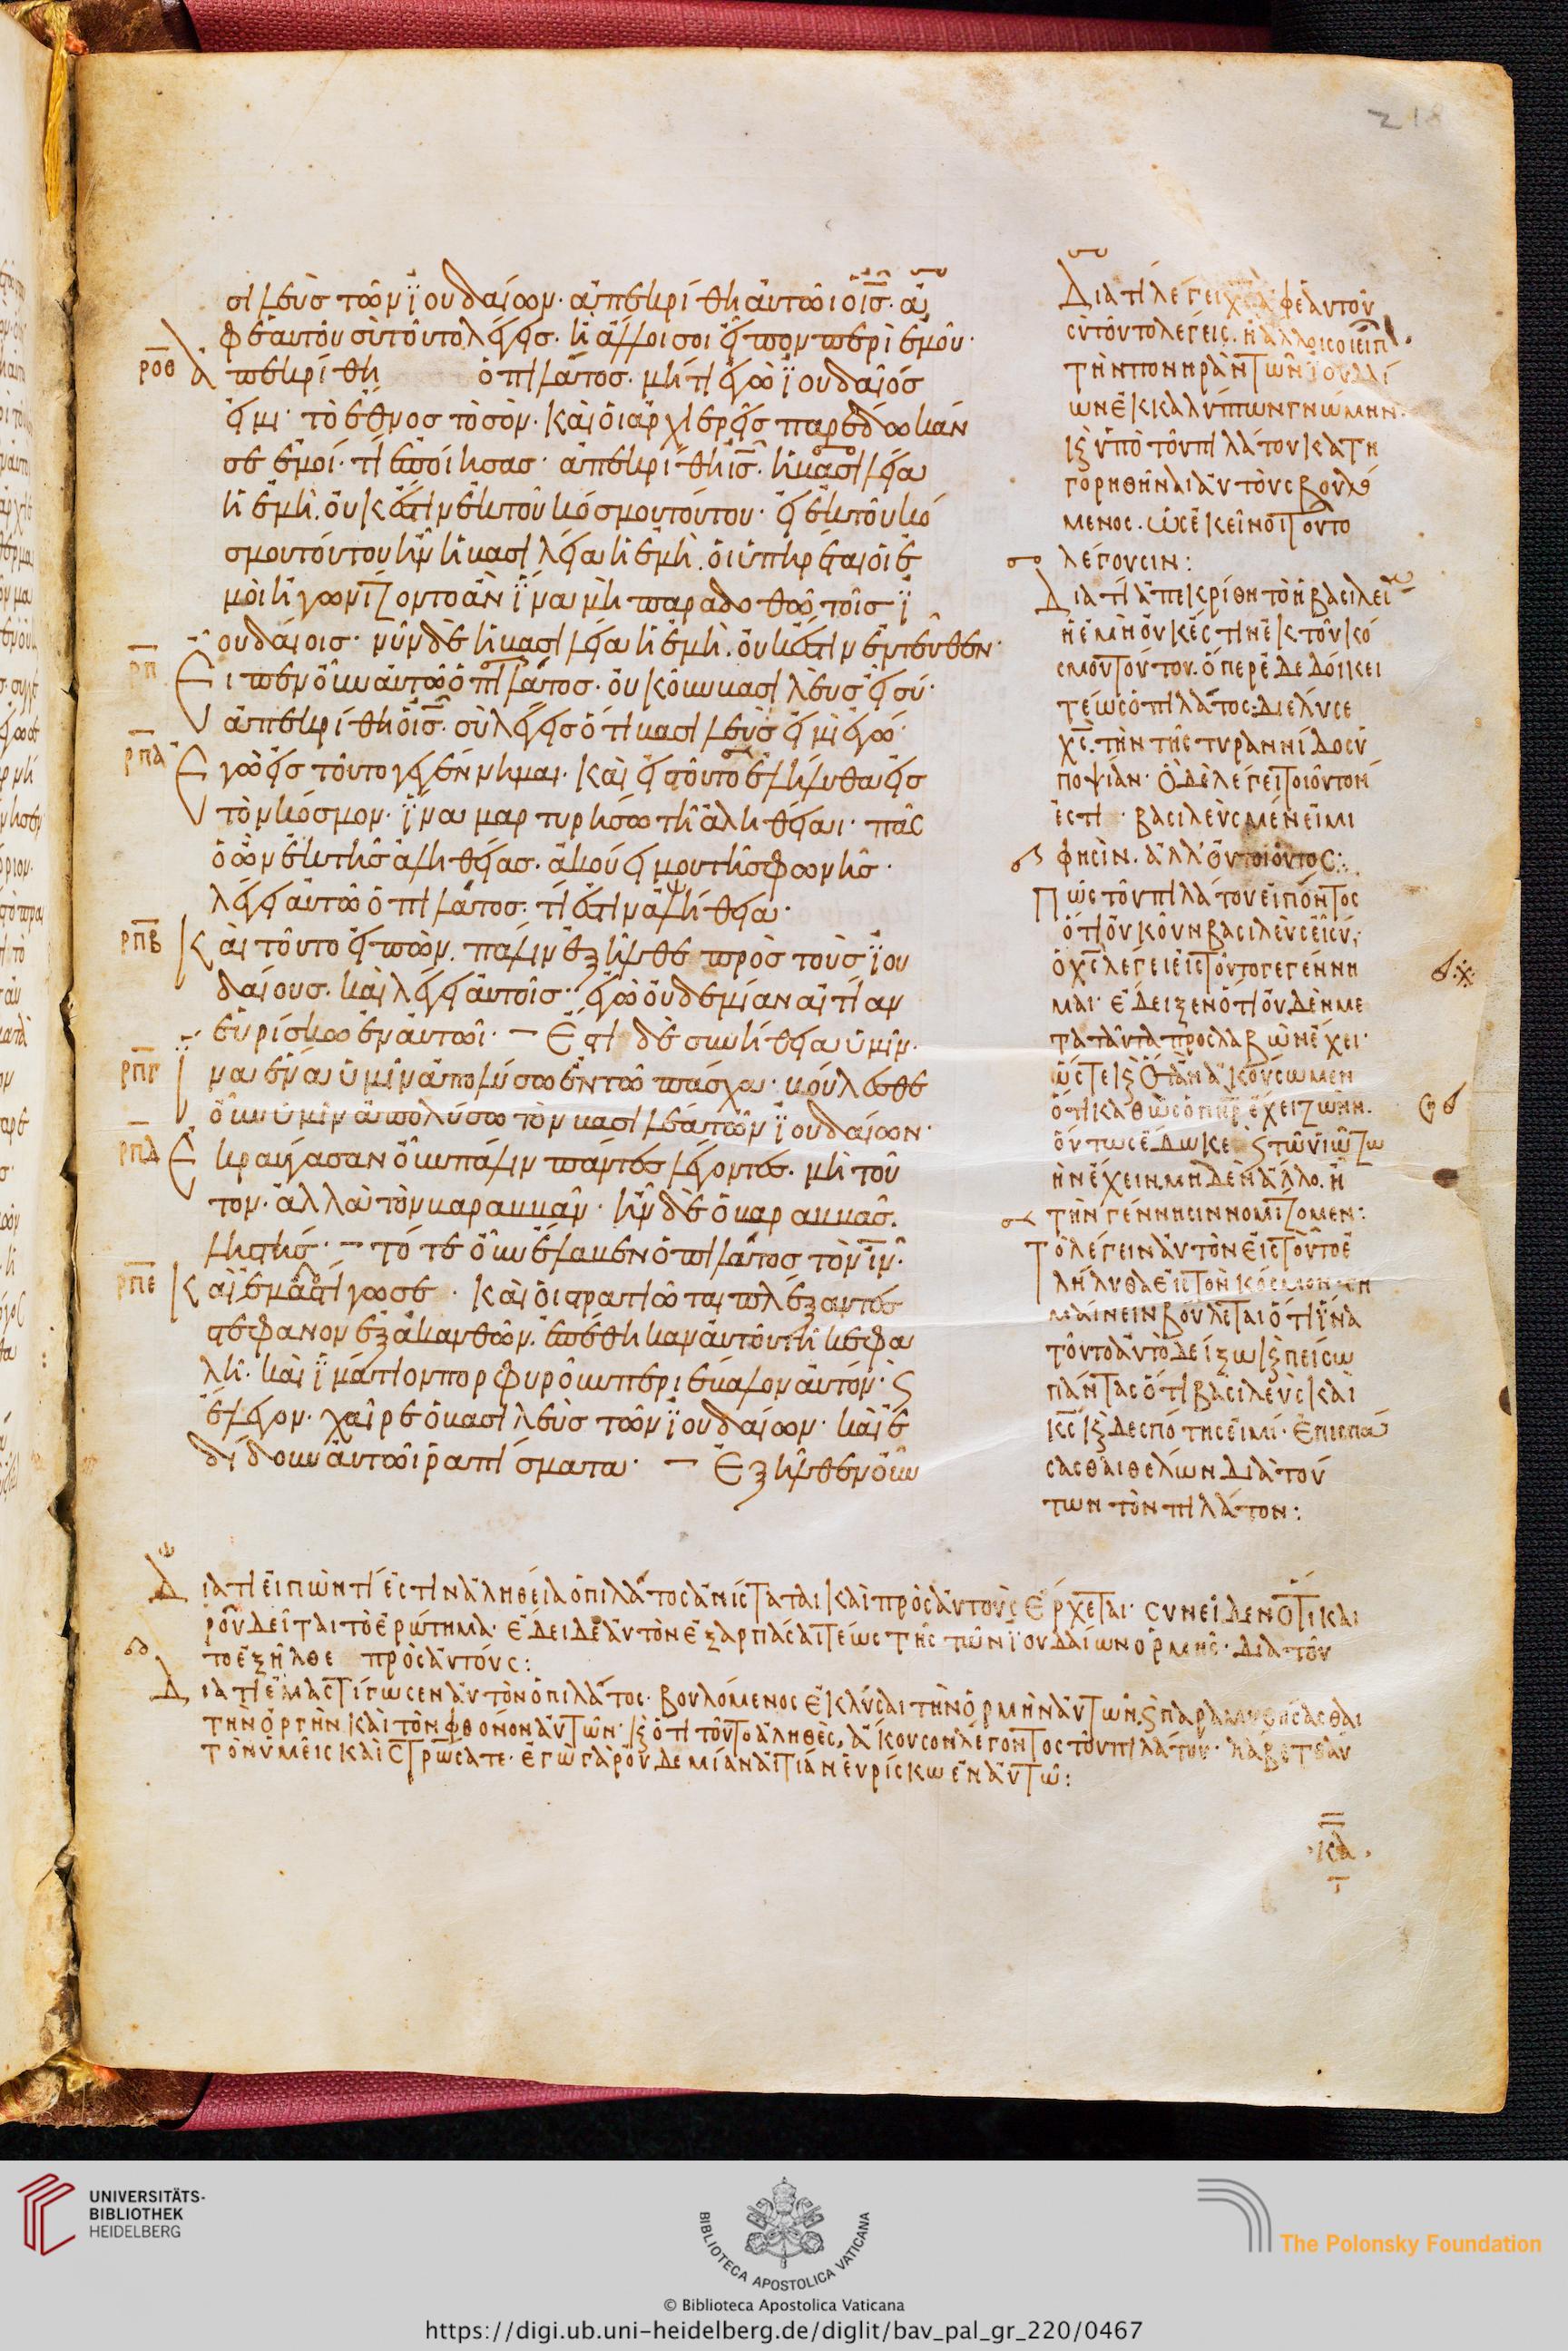 218
σιλευσ των ϊουδαίων· ἀπεκρίθη αὐτῶι ὁ ι̅σ̅· ἀ
φεαυτοῦ σὺ τοῦτο λέγεισ· ἢ ἄλλοι σοι εἶπον περὶ ἐμοῦ·
ρο̅θ̅ ἀ πεκρίθη ὁ πιλάτοσ· μήτι ἐγὼ ϊουδαῖόσ
εἰμι· τὸ ἔθνοσ τὸ σὸν· καὶ οἱ ἀρχιερεῖσ παρέδωκάν
σε ἐμοί· τί ἐποίησασ· ἀπεκρίθη ι̅σ̅· ἡ βασιλεία
ἡ ἐμὴ· οὐκ ἔστιν ἐκ τοῦ κόσμου τούτου· εἰ ἐκ τοῦ κό
σμου τούτου ἦν ἡ βασιλεία ἡ ἐμὴ· οἱ ὑπηρέται οἱ ἐ
μοὶ ἠγωνίζοντο ἀν ϊνα μὴ παραδοθῶ τοῖσ ϊ
ουδαίοισ· νῦν δὲ ἡ βασιλεία ἡ ἐμὴ· οὐκ ἔστιν ἐντεῦθεν·
ρ̅π̅ Ε ιπεν οὖν αὐτῶ ὁ πιλάτοσ· οὐκοῦν βασιλεὺσ εἶ σύ·
ἀπεκρίθη ὁ ι̅σ̅· σὺ λέγεισ ὅτι βασιλεὺσ εἰμὶ ἐγώ·
ρπ̅α̅ Ε γὼ εἰσ τοῦτο γεγέννημαι· καὶ εἰσ τοῦτο ἐλήλυθα εἰσ
τὸν κόσμον· ϊνα μαρτυρήσω τῆ ἀληθείαι· πᾶσ
ὁ ὢν ἐκ τῆσ ἀληθείασ· ἀκούει μου τῆσ φωνῆσ·
λέγει αὐτῶ ὁ πιλάτοσ· τί ἐστιν ἀλήθεια·
ρπ̅β̅ Κ αὶ τοῦτο εἰπὼν· πάλιν ἐξῆλθε πρὸσ τοὺσ ϊου
δαίουσ· καὶ λέγει αὐτοῖσ· ἐγὼ οὐδεμίαν αἰτίαν
εὑρίσκω ἐν αὐτῶι· — Ἔστι δὲ συνήθεια ὑμῖν·
ρπ̅γ̅ ϊ να ἕνα ὑμῖν ἀπολύσω ἐν τῶ πάσχα· βούλεσθε
οὖν ὑμῖν ἀπολύσω τὸν βασιλέα τῶν ϊουδαίων·
ρπ̅δ̅ Ε κραύγασαν οὖν πάλιν πάντεσ λέγοντεσ· μὴ τοῦ
τον· ἀλλὰ τὸν βαραββᾶν· ἦν δὲ ὁ βαραββᾶσ·
ληστήσ· — τότε οὖν ἔλαβεν ὁ πιλάτοσ τὸν ι̅ν̅·
ρπ̅ε̅ Κ αὶ ἐμαστίγωσε· καὶ οἱ στρατιῶται πλέξαντεσ
στέφανον ἐξ ἀκανθῶν· ἐπέθηκαν αὐτοῦ τῆ κεφα
λῆ· καὶ ϊμάτιον πορφυροῦν περιέβαλον αὐτόν· ϛ
ἔλεγον· χαῖρε ὁ βασιλεὺσ τῶν ϊουδαίων· καὶ ἐ
δίδουν αὐτῶι ῥαπίσματα· — Ἐξῆλθεν οὖν
Διατί λέγει χ̅ς̅ ἀφεαυτοῦ
σὺ τοῦτο λέγεις· ἢ ἄλλοι σοι εἶπον·
τὴν πονηρὰν τῶν ϊουδαί
ων ἐκκαλύπτων γνώμην·
κ ὑπὸ τοῦ πιλάτου κατη
γορηθῆναι αὐτοὺς βουλό
μενος· ὡς ἐκεῖνοι τοῦτο
λέγουσιν:
Διατί ἀπεκρίθη τὸ ἡ βασιλεί
ἡ ἐμὴ οὐκ ἔστιν ἐκ τοῦ κό
σμου τούτου· ὅπερ ἐδεδοίκει
τέως ὁ πιλᾶτος· διέλυσε
χ̅ς̅· τὴν τῆς τυραννίδος ὑ
ποψίαν· ὃ δὲ λέγει τοιοῦτον
ἐστι· βασιλεὺς μέν εἰμι
φησὶν· ἀλλ' οὐ τοιοῦτος:
Πῶς τοῦ πιλάτου εἰπόντος
ὅτι οὐκοῦν βασιλεὺς εἶ σύ,
ὁ χ̅ς̅ λέγει εἰς τοῦτο γεγέννη
μαι· ἔδειξεν ὅτι οὐδὲν με
τα ταῦτα προσλαβὼν ἔχει·
ὥστε κ ὅταν ἀκούσωμεν
ὅτι καθὼς ὁ π̅η̅ρ̅ ἔχει ζωήν·
οὕτως ἔδωκε ϛ τῶ υἱῶ ζω
ὴν ἔχειν· μηδὲν ἄλλο· ἢ
τὴν γέννησιν νομίζομεν:
Τὸ λέγειν αὐτὸν εἰς τοῦτο ἐ
λήλυθα εἰς τὸν κόσμον· ση
μαίνειν βούλεται ὅτι ϊνα
τοῦτο αὐτὸ δείξω κ πείσω
πάντας ὅτι βασιλεὺς καὶ
κ̅ς̅ κ δεσπότης εἰμί· ἐπισπά
σασθαι θέλων διὰ τού
των τὸν πιλάτον:
Διατί εἰπὼν τί ἐστιν ἀλήθεια ὁ πιλᾶτος ἀνίσταται καὶ πρὸς αὐτοὺς ἔρχεται· συνεῖδεν ὅτι και
ροῦ δεῖται τὸ ἐρώτημα· ἔδει δὲ αὐτὸν ἐξαρπάσαι τέως τῆς τῶν ϊουδαίων ὁρμῆς· διὰ τοῦ
το ἐξῆλθε πρὸς αὐτούς:
Διατί ἐμαστίγωσεν αὐτὸν ὁ πιλᾶτος· βουλόμενος ἐκλύσαι τὴν ὁρμὴν αὐτῶν· ϛ παραμυθήσασθαι
τὴν ὀργὴν καὶ τὸν φθόνον αὐτῶν· κ ὅτι τοῦτο ἀληθὲς, ἄκουσον λέγοντος τοῦ πιλάτου· λάβετε αὐ
τὸν ὑμεῖς καὶ στρώσατε· ἐγὼ γὰρ οὐδεμίαν αἰτίαν εὑρίσκω ἐν αὐτῶ:
·κα·
UNIVERSITÄTS-
BIBLIOTHEK
HEIDELBERG
BIBLIOTECA APOSTOLICA VATICANA
The Polonsky Foundation
© Biblioteca Apostolica Vaticana
https://digi.ub.uni-heidelberg.de/diglit/bav_pal_gr_220/0467